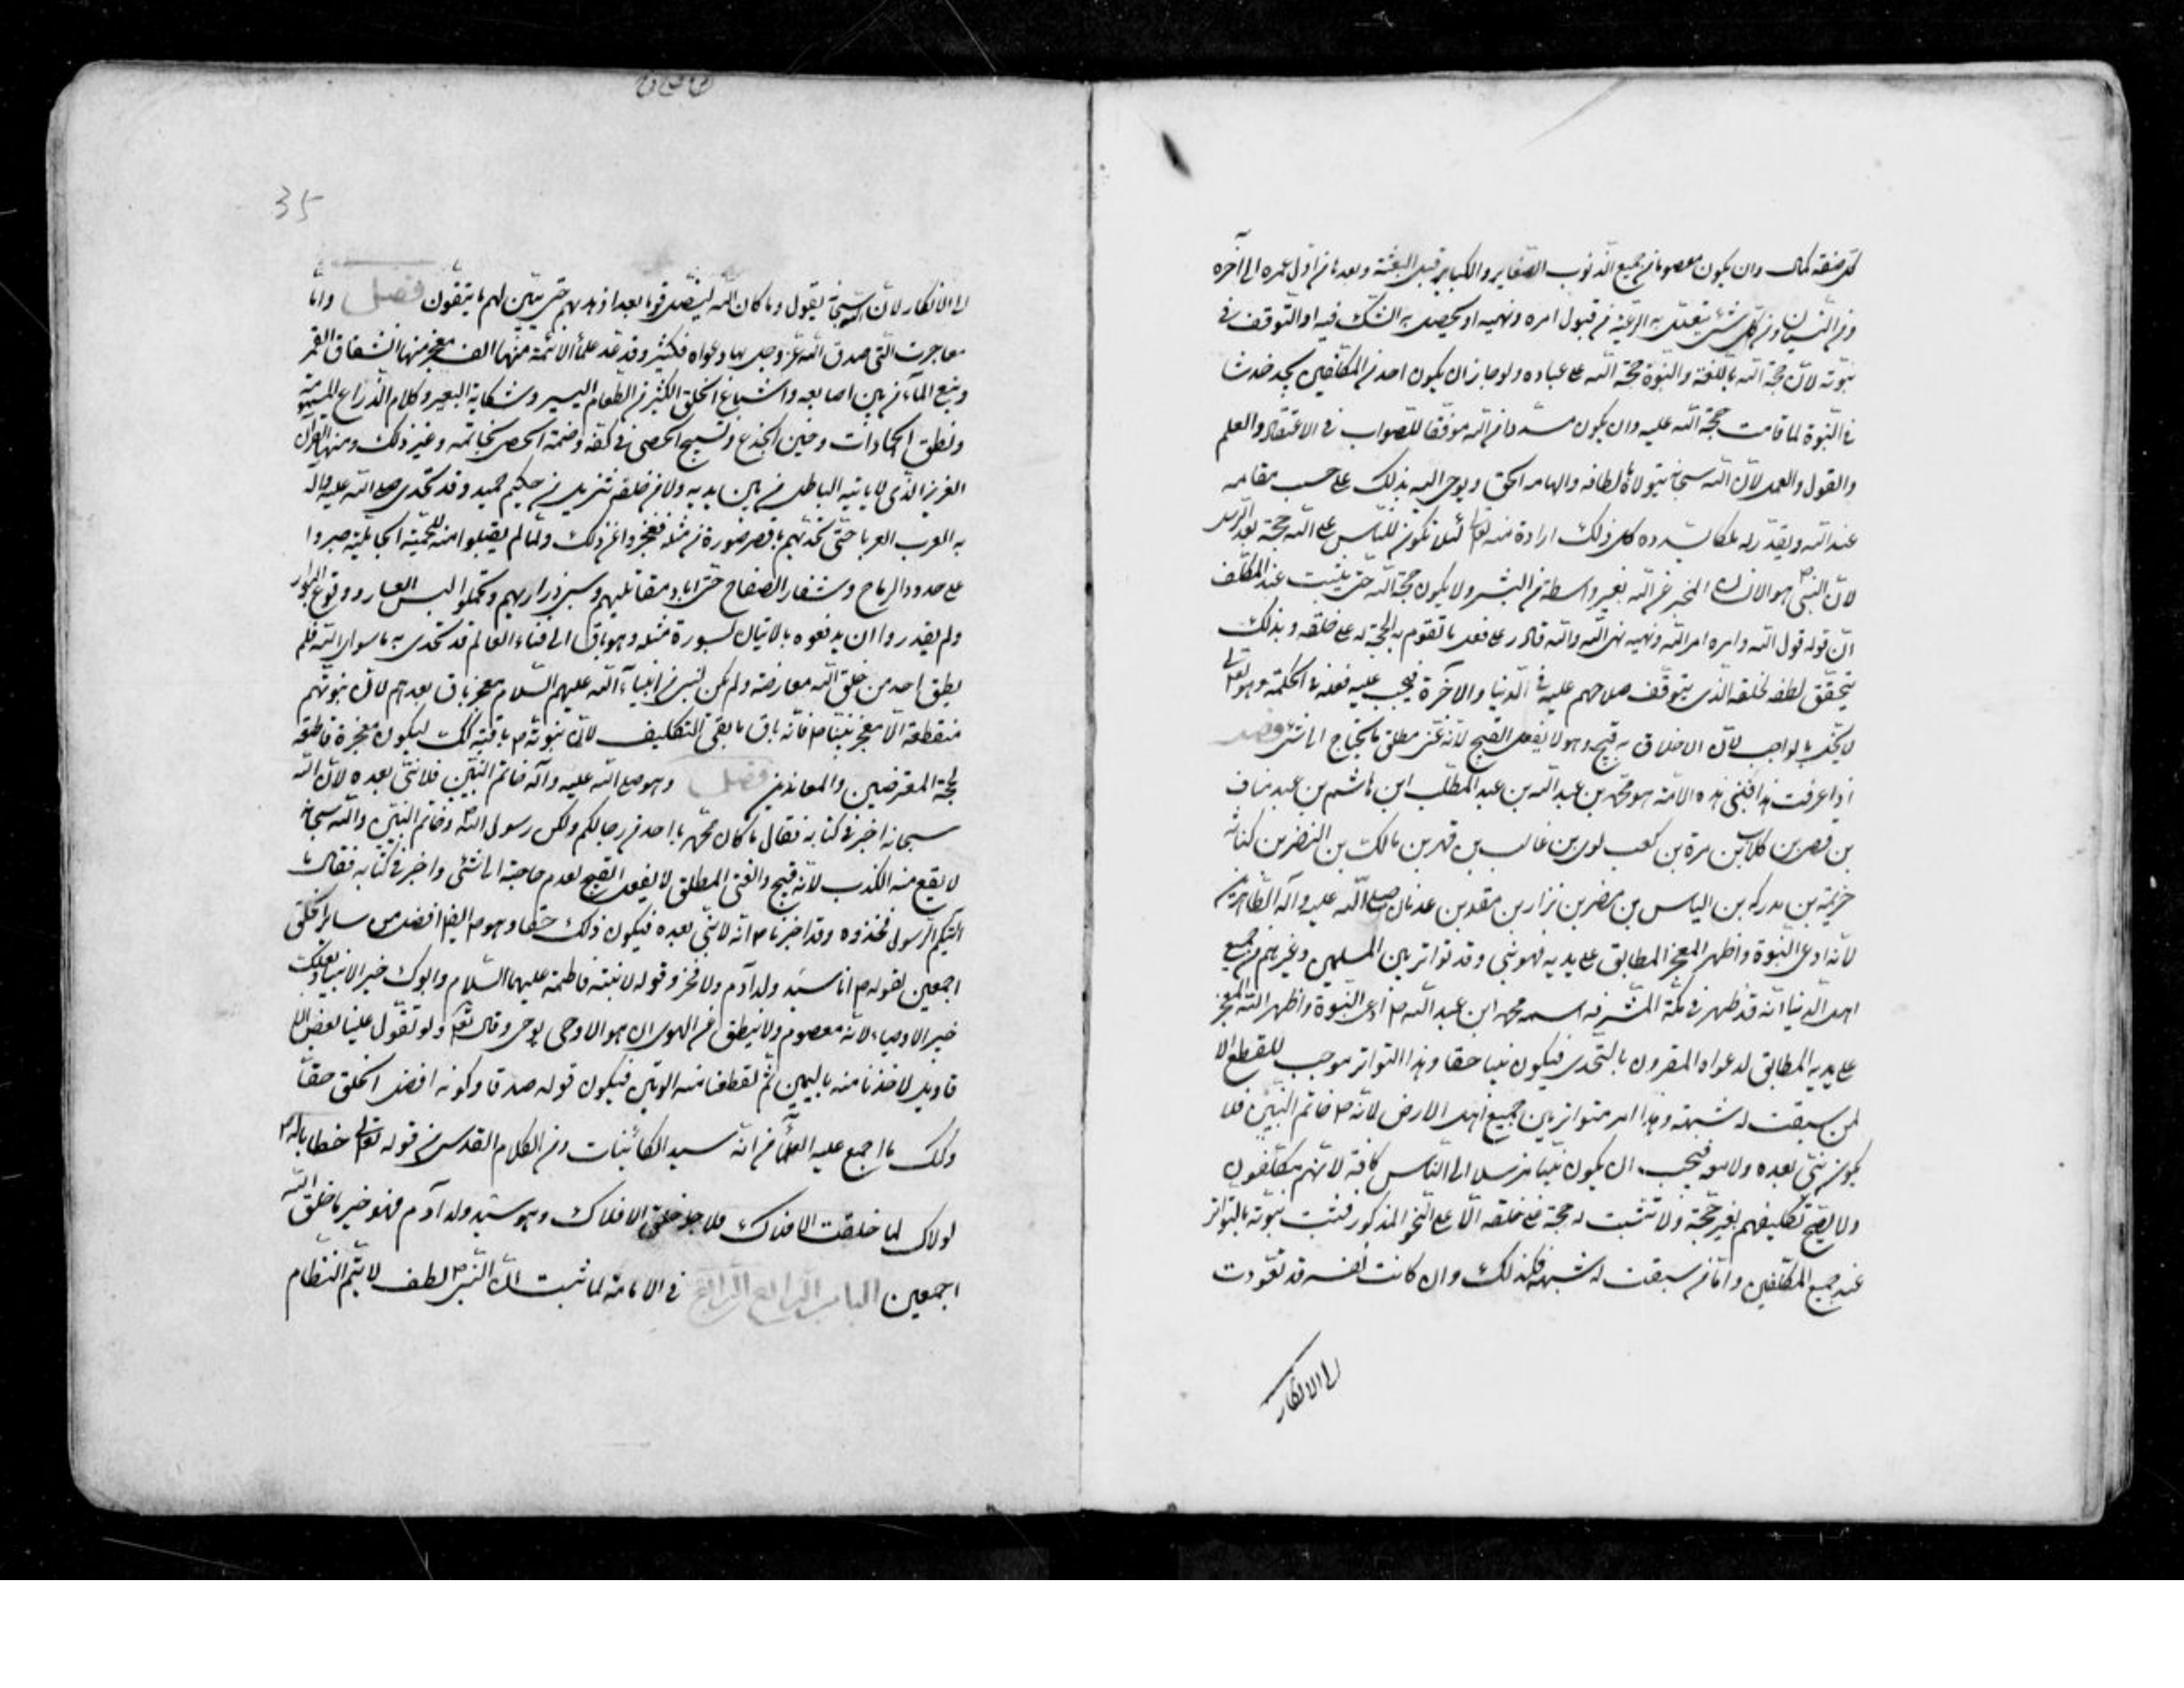 كل صفة كمال وان يكون معصوما من جميع الذنوب الصغاير والكباير قبل البعثة وبعدها من اول عمره الى آخره
ومن النسيان ومن كل شئ يتعلل به الرعية من قبول امره ونهيه او يحصل به الشك فيه او التوقف في
نبوته لان حجة الله بالغة والنبوة حجة الله على عباده ولو جاز ان يكون احد من المكلفين يجد خدشا
في النبوة لما قامت حجة الله عليه وان يكون مسددا من الله موفقا للصواب في الاعتقاد والعلم
والقول والعمل لان الله سبحانه يتولاه بالطافه والهامه الحق ويوحى اليه بذلك على حسب مقامه
عند الله ويقدر له ملكا يسدده كل ذلك ارادة منه تعالى لئلا تكون للناس على الله حجة بعد الرسل
لان النبى ص هو الانسان المخبر عن الله بغير واسطة من البشر ولا يكون حجة الله حتى يثبت عند المكلف
ان قوله قول الله وامره امر الله ونهيه نهى الله والله قادر على فعل ما تقوم به الحجة له على خلقه وبذلك
يتحقق لطفه لخلقه الذى يتوقف صلاحهم عليه في الدنيا والآخرة فيجب عليه فعله في الحكمة وهو تعالى
لا يخل بالواجب لان الاخلال به قبيح وهو لا يفعل القبيح لانه غنى مطلق لا يحتاج الى شئ فصل
اذا عرفت هذا فنبى هذه الامة هو محمد بن عبد الله بن عبد المطلب ابن هاشم بن عبد مناف
بن قصى بن كلاب بن مرة بن كعب لوى بن غالب بن فهر بن مالك بن النضر بن كنانة
خزيمة بن مدركه بن الياس بن مضر بن نزار بن معد بن عدنان صلى الله عليه وآله الطاهرين
لانه ادعى النبوة واظهر المعجز المطابق على يديه فهو نبى وقد تواتر بين المسلمين وغيرهم من جميع
اهل الدنيا انه قد ظهر في مكة المشرفه اسمه محمد ابن عبد الله ص ادعى النبوة واظهر الله المعجز
على يديه المطابق لدعواه المقرون بالتحدى فيكون نبيا حقا وهذا التواتر موجب للقطع الا
لمن سبقت له شبهة وهذا امر متواتر بين جميع اهل الارض لانه ص خاتم النبيين فلا
يكون نبى بعده ولا معه فيجب ان يكون نبيا مرسل الى الناس كافة لانهم مكلفون
ولا يصح تكليفهم بغير حجة ولا تثبت له حجة على خلقه الا على النحو المذكور فثبتت نبوته بالتواتر
عند جميع المكلفين واما من سبقت له شبهة فكذلك وان كانت نفسه قد تعودت
على الانكار
35
على الانكار لان الله سبحانه يقول وما كان الله ليضل قوما بعد اذ هديهم حتى يتبين لهم ما يتقون فصل واما
معاجزه التى صدق الله عز وجل بها دعواه فكثير وقد عد علماء الائمة منها الف معجز منها انشقاق القمر
ونبع الماء من بين اصابعه واشباع الخلق الكثير من الطعام اليسير وشكاية البعير وكلام الذراع المسمومة
ونطق الجمادات وحنين الجذع وتسبيح الحصى في كفه وختمة الحصى بخاتمه وغير ذلك ومنها القرآن
العزيز الذى لا ياتيه الباطل من بين يديه ولا من خلفه تنزيل من حكيم حميد وقد تحدى صلى الله عليه وآله
به العرب العربا حتى تحديهم باقصر سورة من مثله فعجزوا عن ذلك ولما لم يقبلوا منه للحمية الجاهلية صبروا
على حدود الرماح وشفار الصفاح حتى اباد مقاتليهم وسبى ذراريهم وتحملوا لبس العار ووقوع البوار
ولم يقدروا ان يدفعوه بالاتيان بسورة مثله وهو باق الى فناء العالم قد تحدى به ما سوى الله فلم
يطق احد من خلق الله معارضته ولم يكن لنبى من انبياء الله عليهم السلام معجز باق بعدهم لان نبوتهم
منقطعة الا معجز نبينا ص فانه باق ما بقى التكليف لان نبوته ص باقية كذلك ليكون معجزه قاطعة
لحجة المعترضين والمعاندين فصل وهو صلى الله عليه وآله خاتم النبيين فلا نبى بعده لان الله
سبحانه اخبر في كتابه فقال ما كان محمد ابا احد من رجالكم ولكن رسول الله وخاتم النبيين والله سبحانه
لا يقع منه الكذب لانه قبيح والغنى المطلق لا يفعل القبيح لعدم حاجته الى شئ واخبر في كتابه فقال ما
آتيكم الرسول فخذوه وقد اخبرنا ص انه لا نبى بعده فيكون ذلك حقا وهو ص ايضا افضل من ساير الخلق
اجمعين لقوله ص انا سيد ولد آدم ولا فخر وقوله لابنته فاطمة عليهما السلام وابوك خير الانبياء وبعلك
خير الاوصياء لانه معصوم ولا ينطق عن الهوى ان هو الا وحى يوحى وقال تعالى ولو تقول علينا بعض الا
قاويل لاخذنا منه باليمين ثم لقطعنا منه الوتين فيكون قوله صدقا وكونه افضل الخلق حقا
وكذلك ما اجمع عليه العلماء من انه سيد الكائنات ومن الكلام القدسى في قوله تعالى خطابا له ص
لولاك لما خلقت الافلاك فلاجله خلق الافلاك وهو سيد ولد آدم فهو خير ما خلق الله
اجمعين الباب الرابع الرابع في الامامة لما ثبت ان النبى ص لطف لا يتم النظام